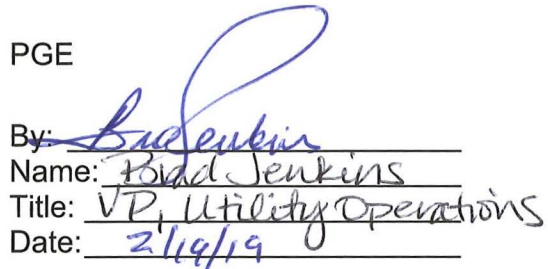 PGE
By: Brad Jenkins
Name: Brad Jenkins
Title: VP, Utility Operations
Date: 2/19/19